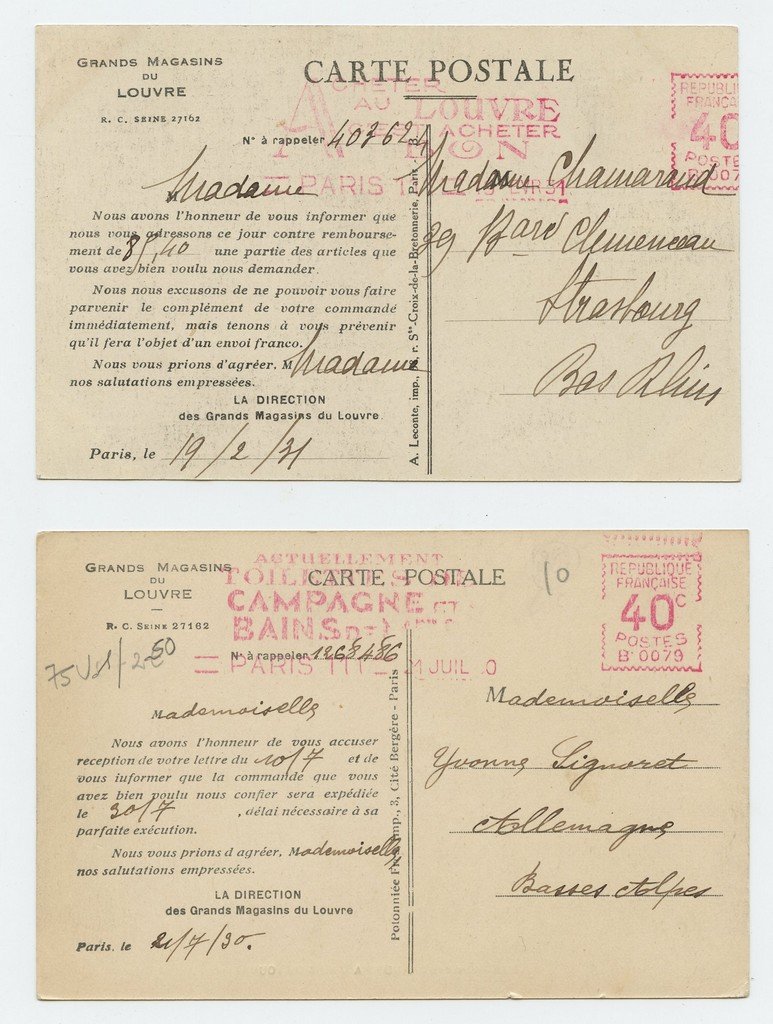 GRANDS MAGASINS
DU
LOUVRE
R. C. SEINE 27162
CARTE POSTALE
ACHETER
AU LOUVRE
C'EST ACHETER
BON
PARIS
REPUBLI
FRANÇA
40
POSTE
B.007
N° à rappeler 403624
Madame
Nous avons l'honneur de vous informer que
nous vous adressons ce jour contre rembourse-
ment de 85,40 une partie des articles que
vous avez bien voulu nous demander.
Nous nous excusons de ne pouvoir vous faire
parvenir le complément de votre commande
immédiatement, mais tenons à vous prévenir
qu'il fera l'objet d'un envoi franco.
Nous vous prions d'agréer. Madame
nos salutations empressées.
LA DIRECTION
des Grands Magasins du Louvre
Paris, le 19/2/31
A. Leconte, imp., r. Ste-Croix-de-la-Bretonnerie, Paris
Madame Chamaraud
Clemenceau
Strasbourg
Bas Rhin
GRANDS MAGASINS
DU
LOUVRE
R. C. SEINE 27162
ACTUELLEMENT
TOILETTES
CARTE POSTALE
CAMPAGNE ET
BAINS
PARIS
21 JUIL 0
10
REPUBLIQUE
FRANÇAISE
40c
POSTES
B.0079
N° à rappeler 1268486
Mademoiselle
Nous avons l'honneur de vous accuser
reception de votre lettre du 10/7 et de
vous iuformer que la commande que vous
avez bien voulu nous confier sera expédiée
le 30/7 , délai nécessaire à sa
parfaite exécution.
Nous vous prions d'agréer, Mademoiselle
nos salutations empressées.
LA DIRECTION
des Grands Magasins du Louvre
Paris. le 21/7/30.
imp., 3, Cité Bergère - Paris
Mademoiselle
Yvonne Signoret
Allemagne
Basses Alpes